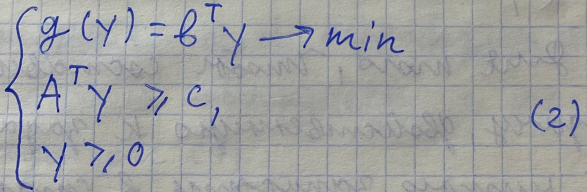 g(y) = bᵀy → min
Aᵀy ⩾ c,
(2)
y ⩾ 0